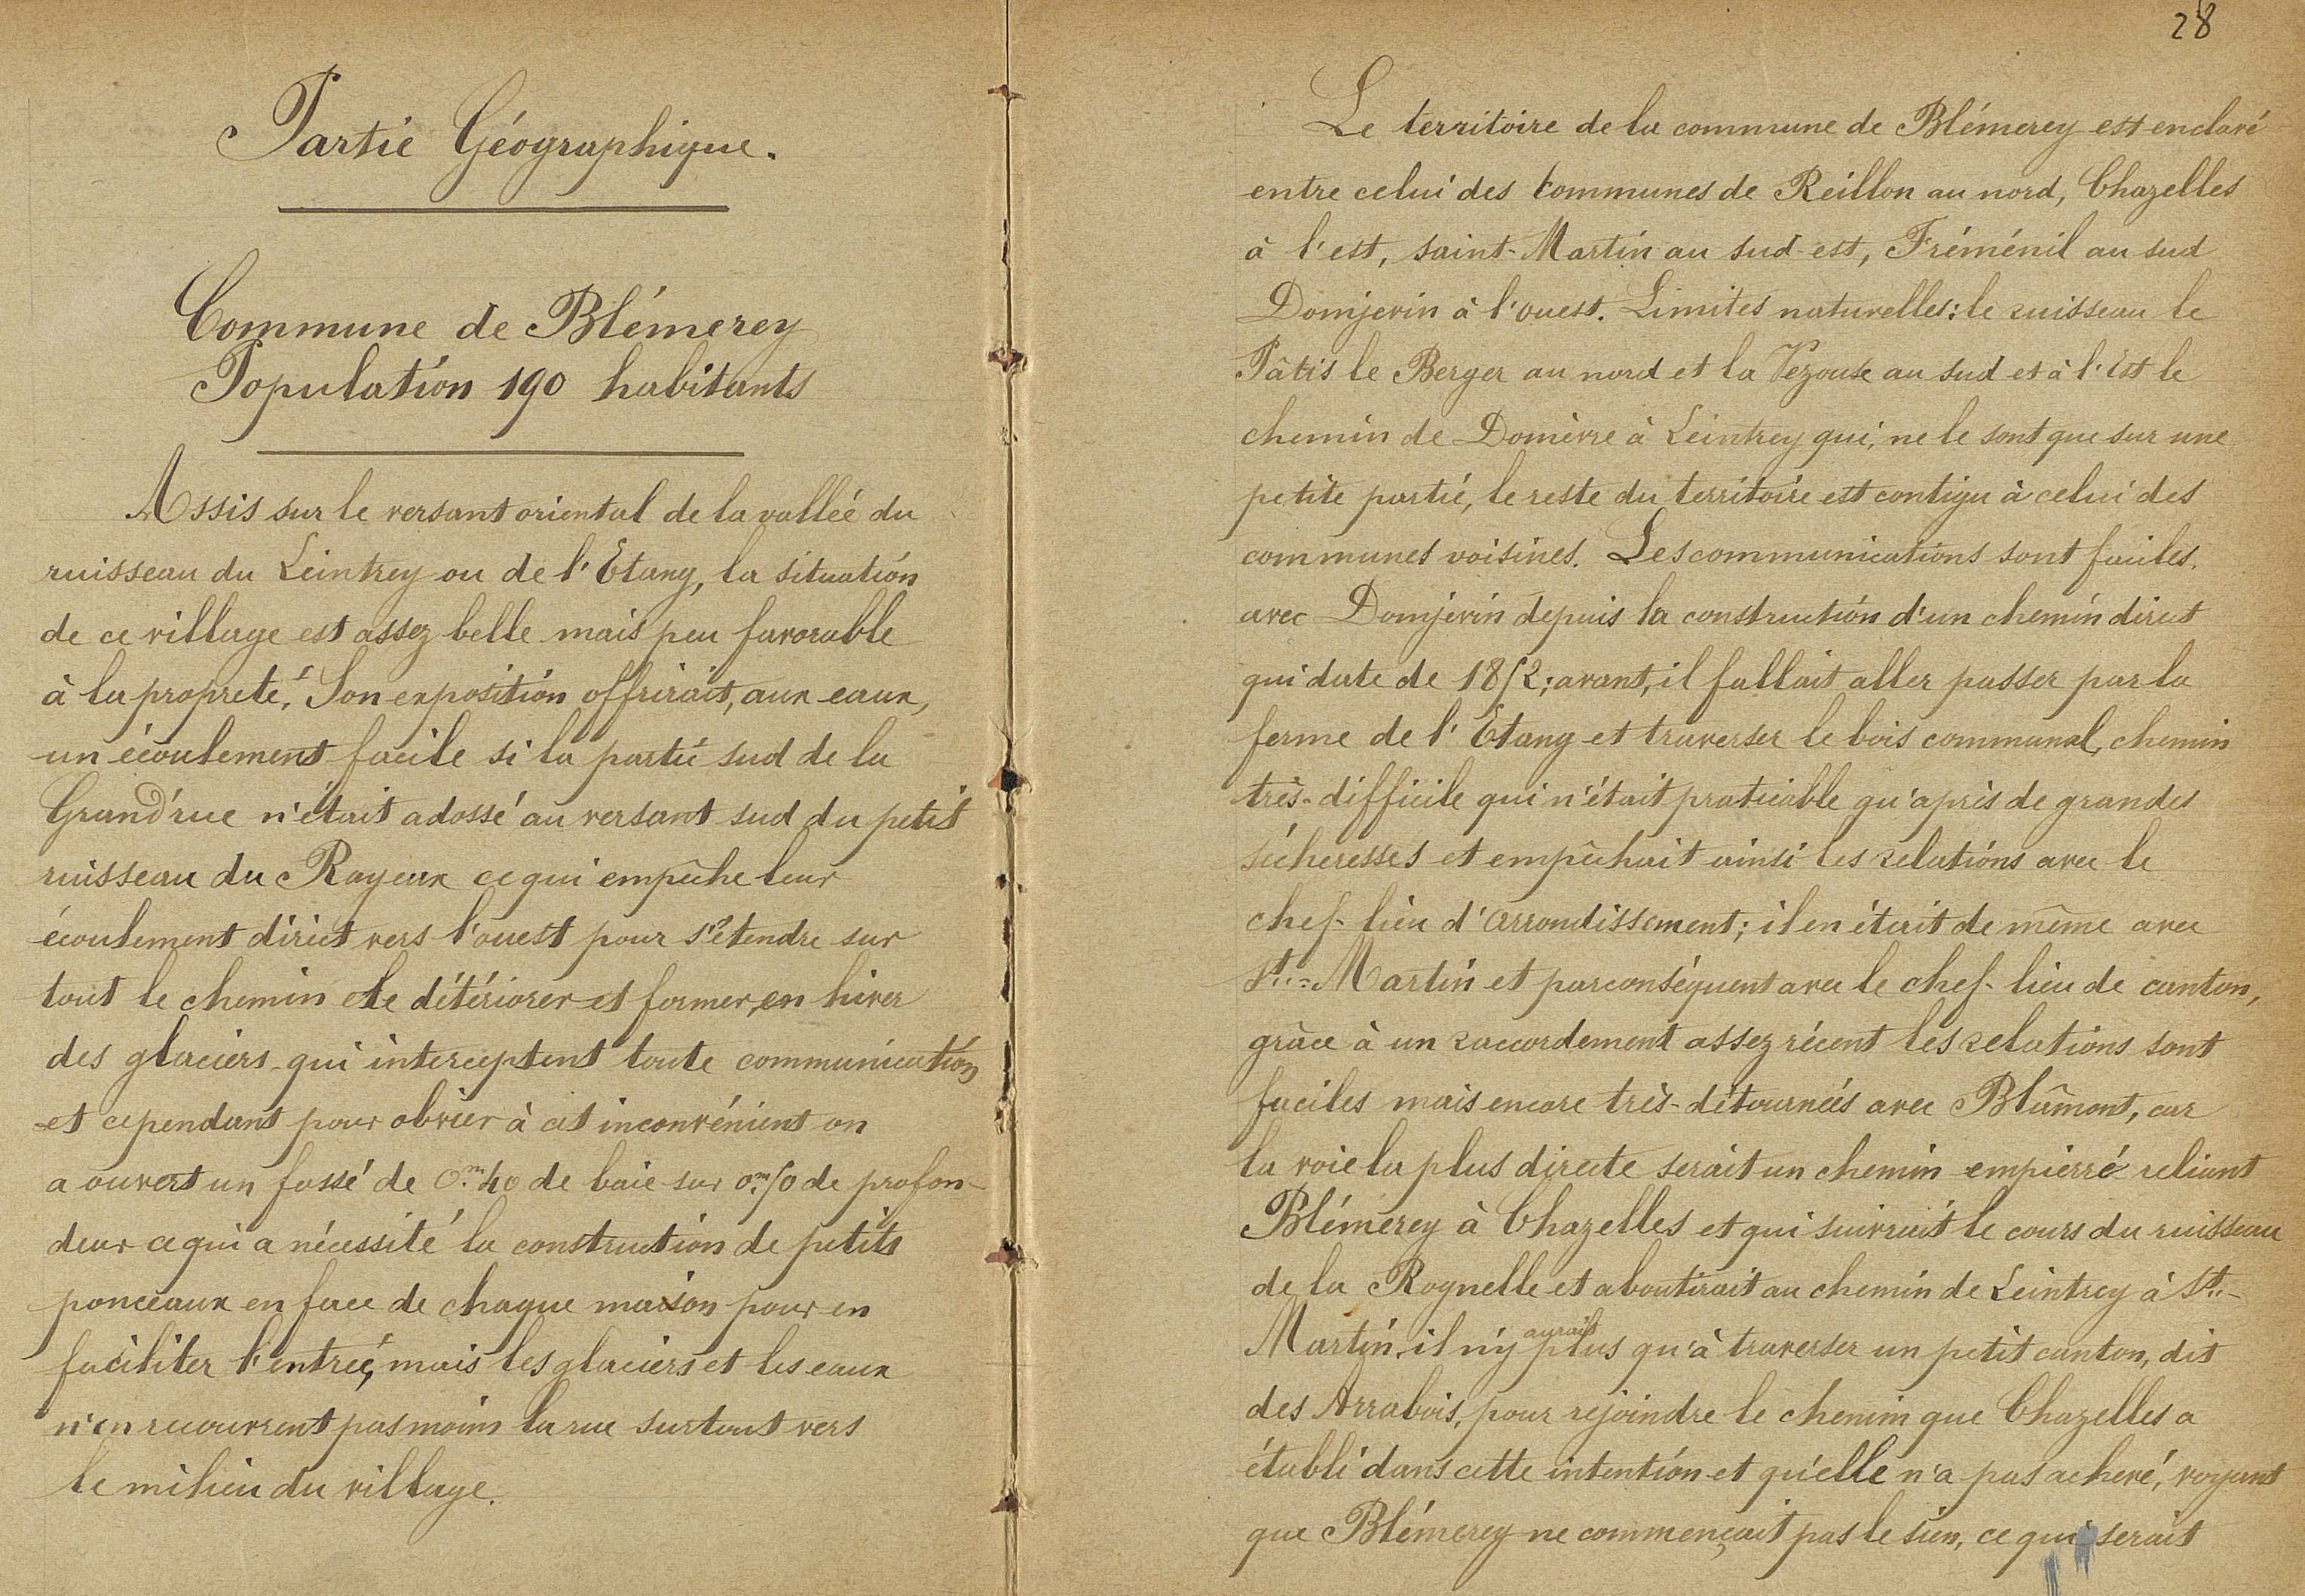 Partie Géographique.
Commune de Blémerey
Population 190 habitants
Assis sur le versant oriental de la vallée du
ruisseau du Leintrey ou de l'Etang, la situation
de ce village est assez belle mais peu favorable
à la propreté. Son exposition offrirait, aux eaux,
un écoulement facile si la partie sud de la
Grand'rue n'était adossé au versant sud du petit
ruisseau du Rayeux ce qui empêche leur
écoulement direct vers l'ouest pour s'étendre sur
tout le chemin et le détériorer et former, en hiver
des glaciers qui interceptent toute communication
et cependant pour obvier à cet inconvénient on
a ouvert un fossé de 0.m 40 de baie sur 0.m 50 de profon-
deur ce qui a nécessité la construction de petits
ponceaux en face de chaque maison pour en
faciliter l'entrée, mais les glaciers et les eaux
n'en recouvrent pas moins la rue surtout vers
le milieu du village.
28
Le territoire de la commune de Blémerey est enclavé
entre celui des communes de Reillon au nord, Chazelles
à l'est, saint-Martin au sud-est, Fréménil au sud
Domjevin à l'ouest. Limites naturelles: le ruisseau le
Pâtis le Berger au nord et la Vezouse au sud et à l'Est le
chemin de Domèvre à Leintrey qui, ne le sont que sur une
petite partie, le reste du territoire est contigu à celui des
communes voisines. Les communications sont faciles.
avec Domjevin depuis la construction d'un chemin direct
qui date de 1852; avant, il fallait aller passer par la
ferme de l'Etang et traverser le bois communal, chemin
très-difficile qui n'était praticable qu'après de grandes
sécheresses et empêchait ainsi les relations avec le
chef-lieu d'arrondissement; il en était de même avec
St.-Martin et parconséquent avec le chef-lieu de canton,
grâce à un raccordement assez récent les relations sont
faciles mais encore très-détournées avec Blâmont, car
la voie la plus directe serait un chemin empierré reliant
Blémerey à Chazelles et qui suivrait le cours du ruisseau
de la Rognelle et aboutirait au chemin de Leintrey à St.-
Martin, il n'y aurait plus qu'à traverser un petit canton, dit
des Arrabois, pour rejoindre le chemin que Chazelles a
établi dans cette intention et qu'elle n'a pas achevé, voyant
que Blémerey ne commençait pas le sien, ce qui serait